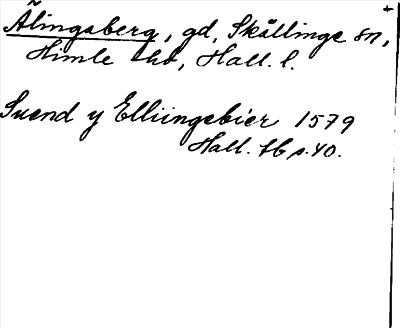 Älingsberg, gd, Skällinge sn,
Himle hd, Hall. l.
Svend y Elliingebier 1579
Hall. Hb s. 40.